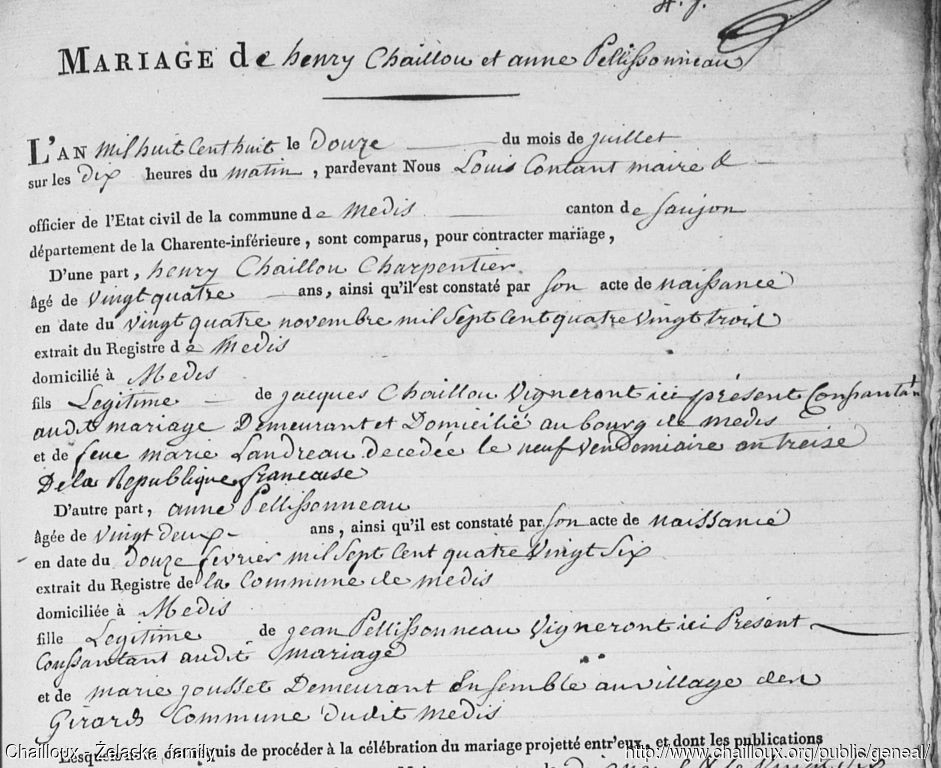 MARIAGE de henry Chaillou et anne Pellissonneau
L'AN mil huit Cent huit le Douze du mois de juillet
sur les dix heures du matin, pardevant Nous Louis Contant maire &
officier de l'Etat civil de la commune de Medis canton de Saujon
département de la Charente-inférieure, sont comparus, pour contracter mariage,
D'une part, henry Chaillou Charpentier
âgé de vingt quatre ans, ainsi qu'il est constaté par son acte de naissance
en date du vingt quatre novembre mil Sept Cent quatre vingt trois
extrait du Registre de Medis
domicilié à Medis
fils Legitime de jacques Chaillou Vigneront ici présent Consantant
audit mariage Demeurant et Domicilié au bourg de medis
et de feue marie Landreau decedée le neuf vendemiaire an treise
De la Republique francaise
D'autre part, anne Pellissonneau
âgée de vingt deux ans, ainsi qu'il est constaté par son acte de naissance
en date du douze fevrier mil Sept Cent quatre Vingt Six
extrait du Registre de la Commune de medis
domiciliée à Medis
fille Legitime de jean Pellissonneau Vigneront ici Présent
Conssantant audit mariage
et de marie jousset Demeurant Ensemble au village des
Girards Commune dudit medis
procéder à la célébration du mariage projetté entr'eux, et dont les publications
Chailloux - Żelaska family
http://www.chailloux.org/public/geneal/